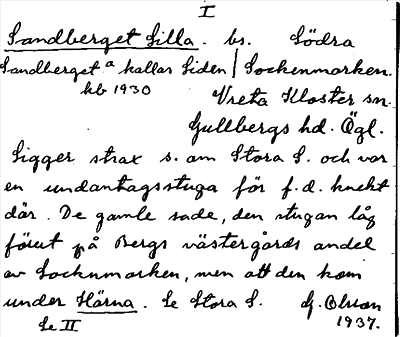 I
Sandberget Lilla. bs. Södra
Sandberget a kallar Liden / Sockenmarken.
kb 1930
Vreta Kloster sn.
Gullbergs hd. Ögl.
Ligger strax s. om Stora S. och var
en undantagsstuga för f. d. knekt
där. De gamle sade, den stugan låg
förut på Bergs västergårds andel
av Socknmarken, men att den kom
under Härna. Se Stora S. G. Olson
Se II 1937.